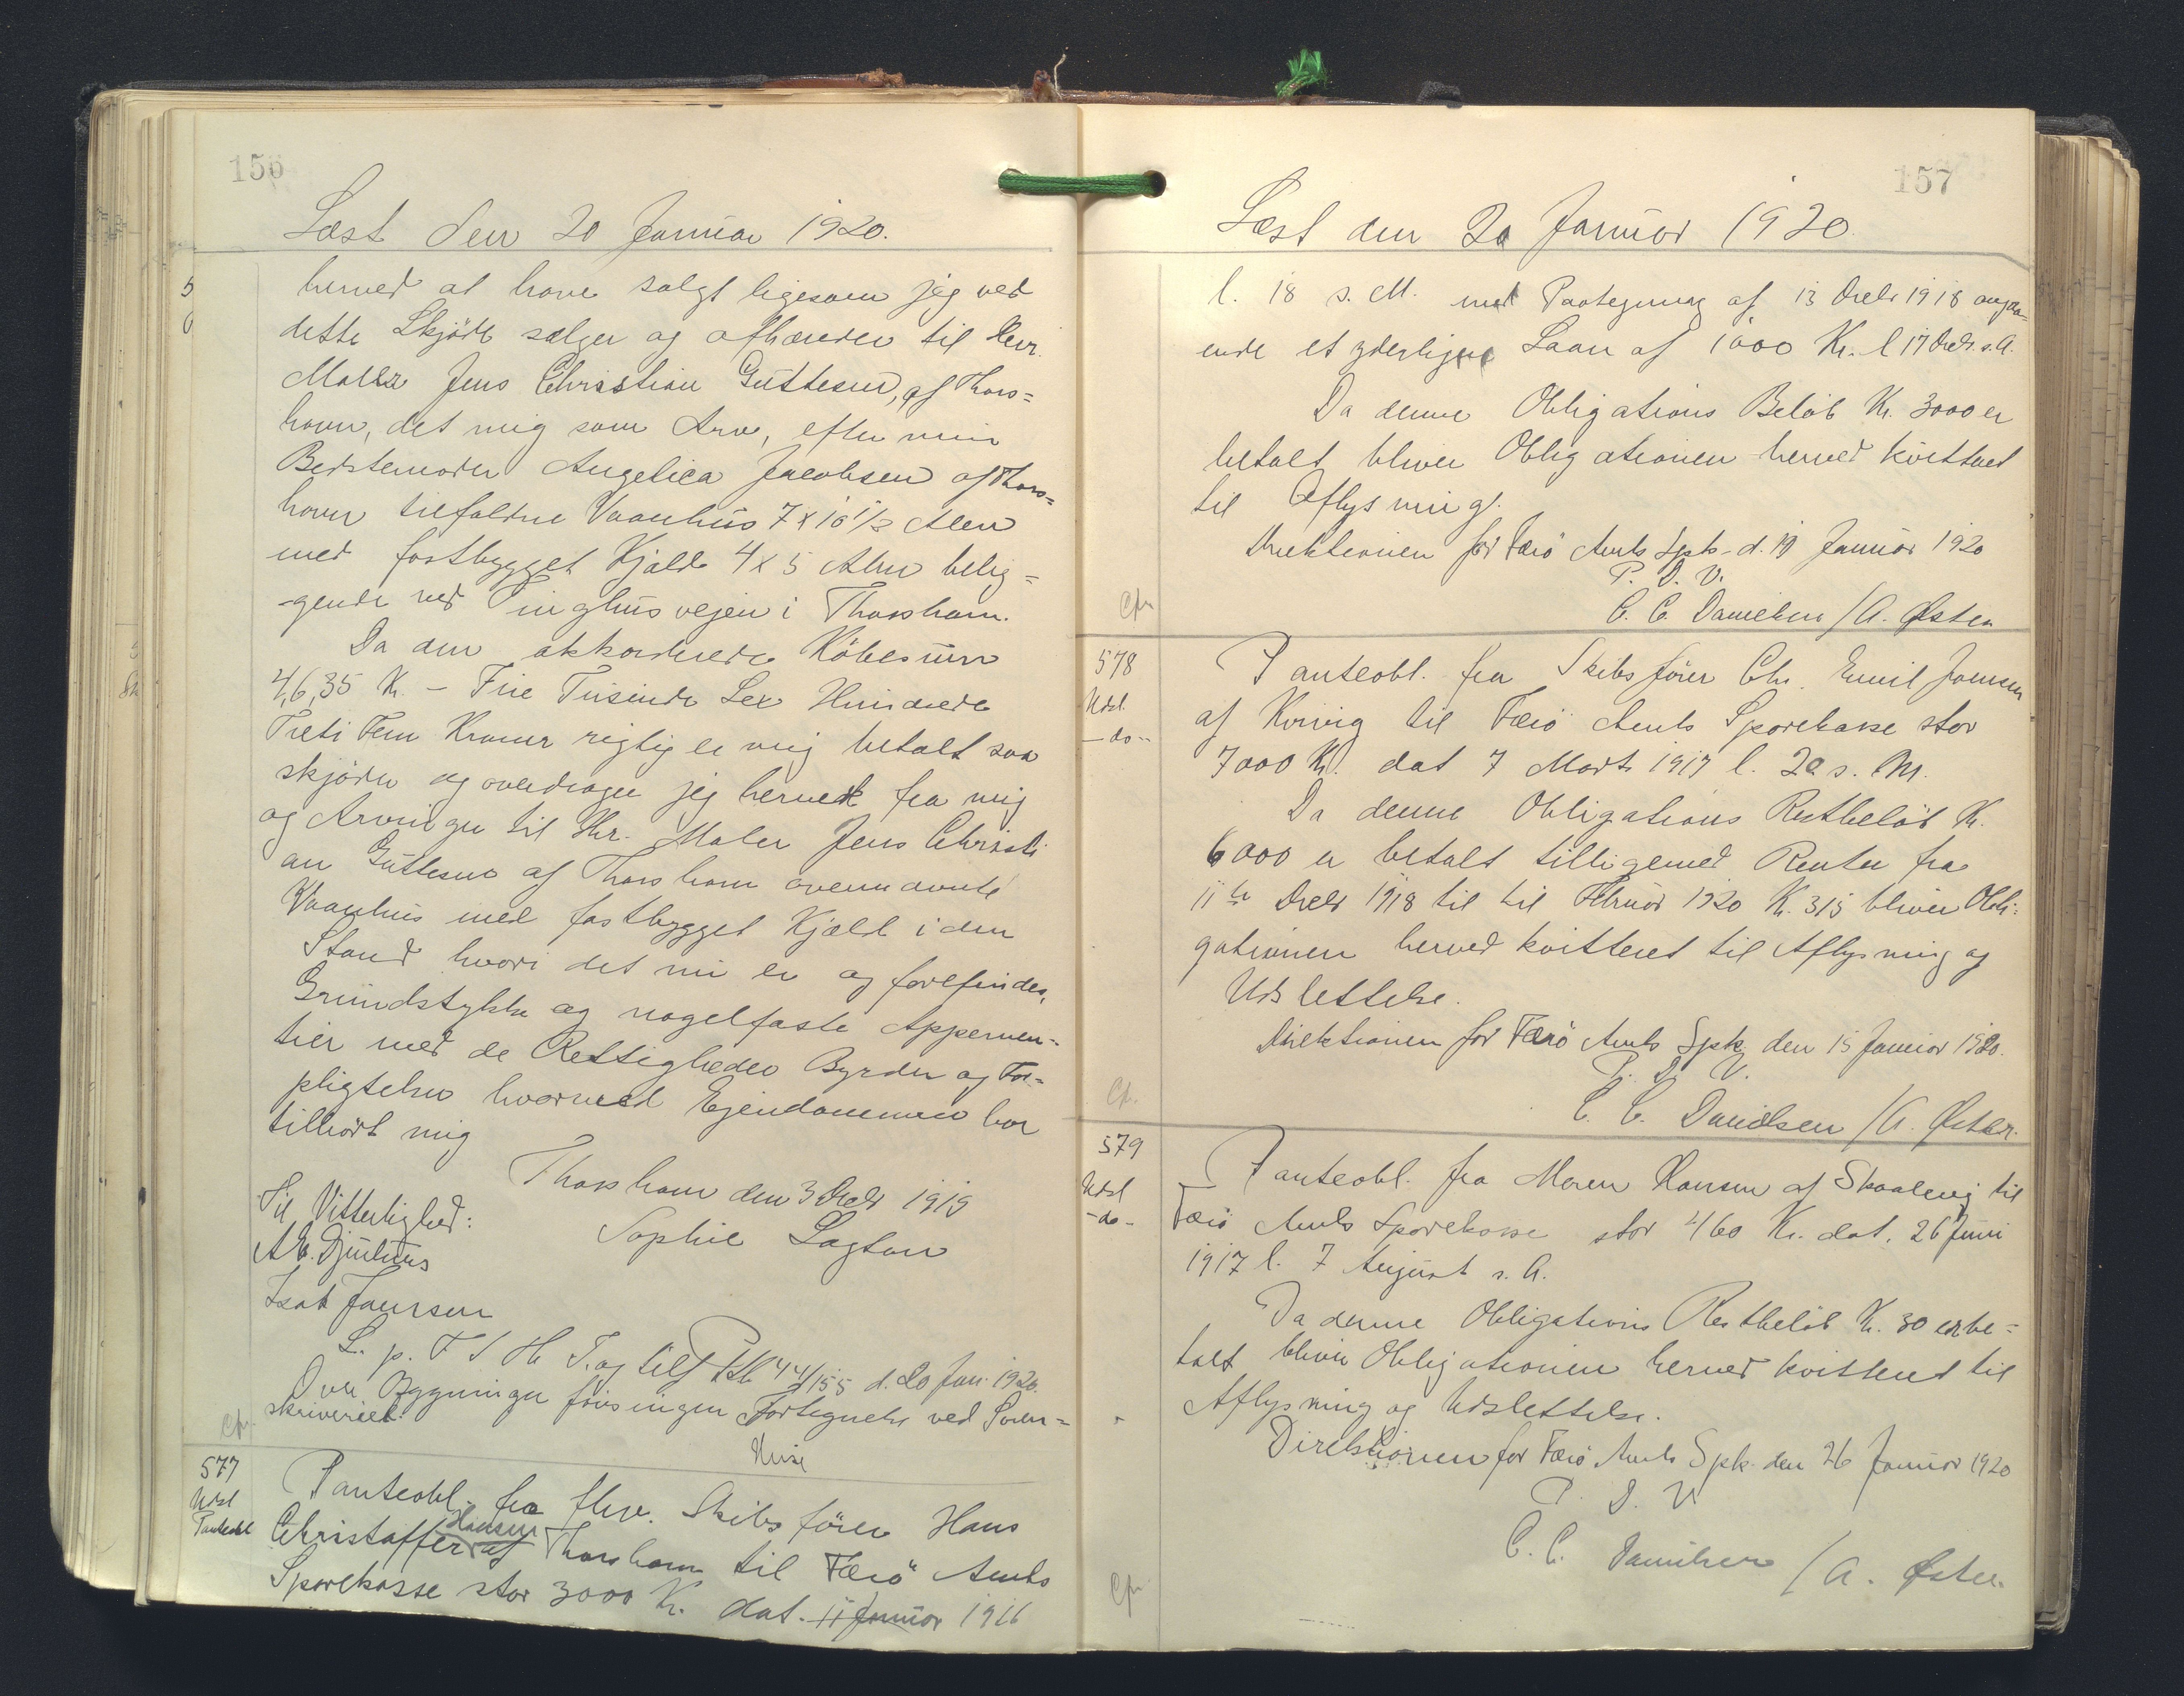 156
Læst den 20 Januar 1920.
herved at have solgt ligesom jeg ved
dette Skjöde sælger og afhænder til Herr.
Maler Jens Christian Guttesen, af Thors=
havn, det mig som Arv, efter min
Bedstemoder Angelica Jacobsen af Thors=
havn tilfaldne Vaanhus 7 x 10 1/2 Alen
med fastbygget Kjeld 4 x 5 Alen belig=
-gende ved Tinghusvejen i Thorshavn.
Da den akkorderede Köbesum
4,6,35 K. - Fire Tusinde Sex Hundrede
Treti Fem Kroner rigtig er mig betalt saa
skjöder og overdrager jeg herved fra mig
og Arvinger til Hr. Maler Jens Christi
an Guttesen af Thorshavn ovennævnte
Vaanhus med fastbygget Kjeld i den
Stand hvori det nu er og forefindes,
Grundstykke og nagelfaste Apperten-
tier med de Rettigheder Byrder og For=
pligtelser hvormed Ejendommen har
tilhört mig
Thorshavn den 3 Decbr 1919
Til Vitterlighed:
Sophie Lagton
A. E. Djurhuus
Isak Jensen
L. p. F. S Th T. og tilf Ptb 44/155 d. 20 Jan. 1920.
Over Bygninger föres ingen Fortegnelse ved Soren=
skriveriet.
Cfr.
577
Udsl
Panteobl
Panteobl. fra fhv. Skibsförer Hans
Christoffer Hansen af Thorshavn til Færö Amts
Sparekasse stor 3000 K. dat. 11 Januar 1916
157
Læst den 20 Januar 1920.
l. 18 s. M. med Paategning af 13 Decbr 1918 angaa=
ende et yderligere Laan af 1000 Kr. l 17 Decbr. s. A.
Da denne Obligations Belöb K. 3000 er
betalt bliver Obligationen herved kvitteret
til Aflysning.
Direktionen for Færö Amts Spk- d. 19 Januar 1920
P. D. V.
C. C. Danielsen / A. Öster
Cfr
578
Udsl.
-do-
Panteobl. fra Skibsförer Chr. Emil Joensen
af Kvivig til Færö Amts Sparekasse stor
7000 K. dat 7 Marts 1917 l. 20 s. M.
Da denne Obligations Restbelöb K.
6000 er betalt tilligemed Renter fra
11te Decbr 1918 til til Februar 1920 K. 315 bliver Obli=
gationen herved kvitteret til Aflysning og
Udslettelse.
Direktionen for Færö Amts Spk. den 15 Januar 1920.
P. D. V.
C. C. Danielsen / A. Öster.
Cfr.
579
Udsl
-do-
Panteobl. fra Maren Hansen af Skaalevig til
Færö Amts Sparekasse stor 460 Kr. dat. 26 Juni
1917 l. 7 August s. A.
Da denne Obligations Restbelöb K. 30 er be=
talt bliver Obligationen herved kvitteret til
Aflysning og Udslettelse.
Direktionen for Færö Amts Spk. den 26 Januar 1920
P. D. V
C. C. Danielsen / A. Öster.
Cfr